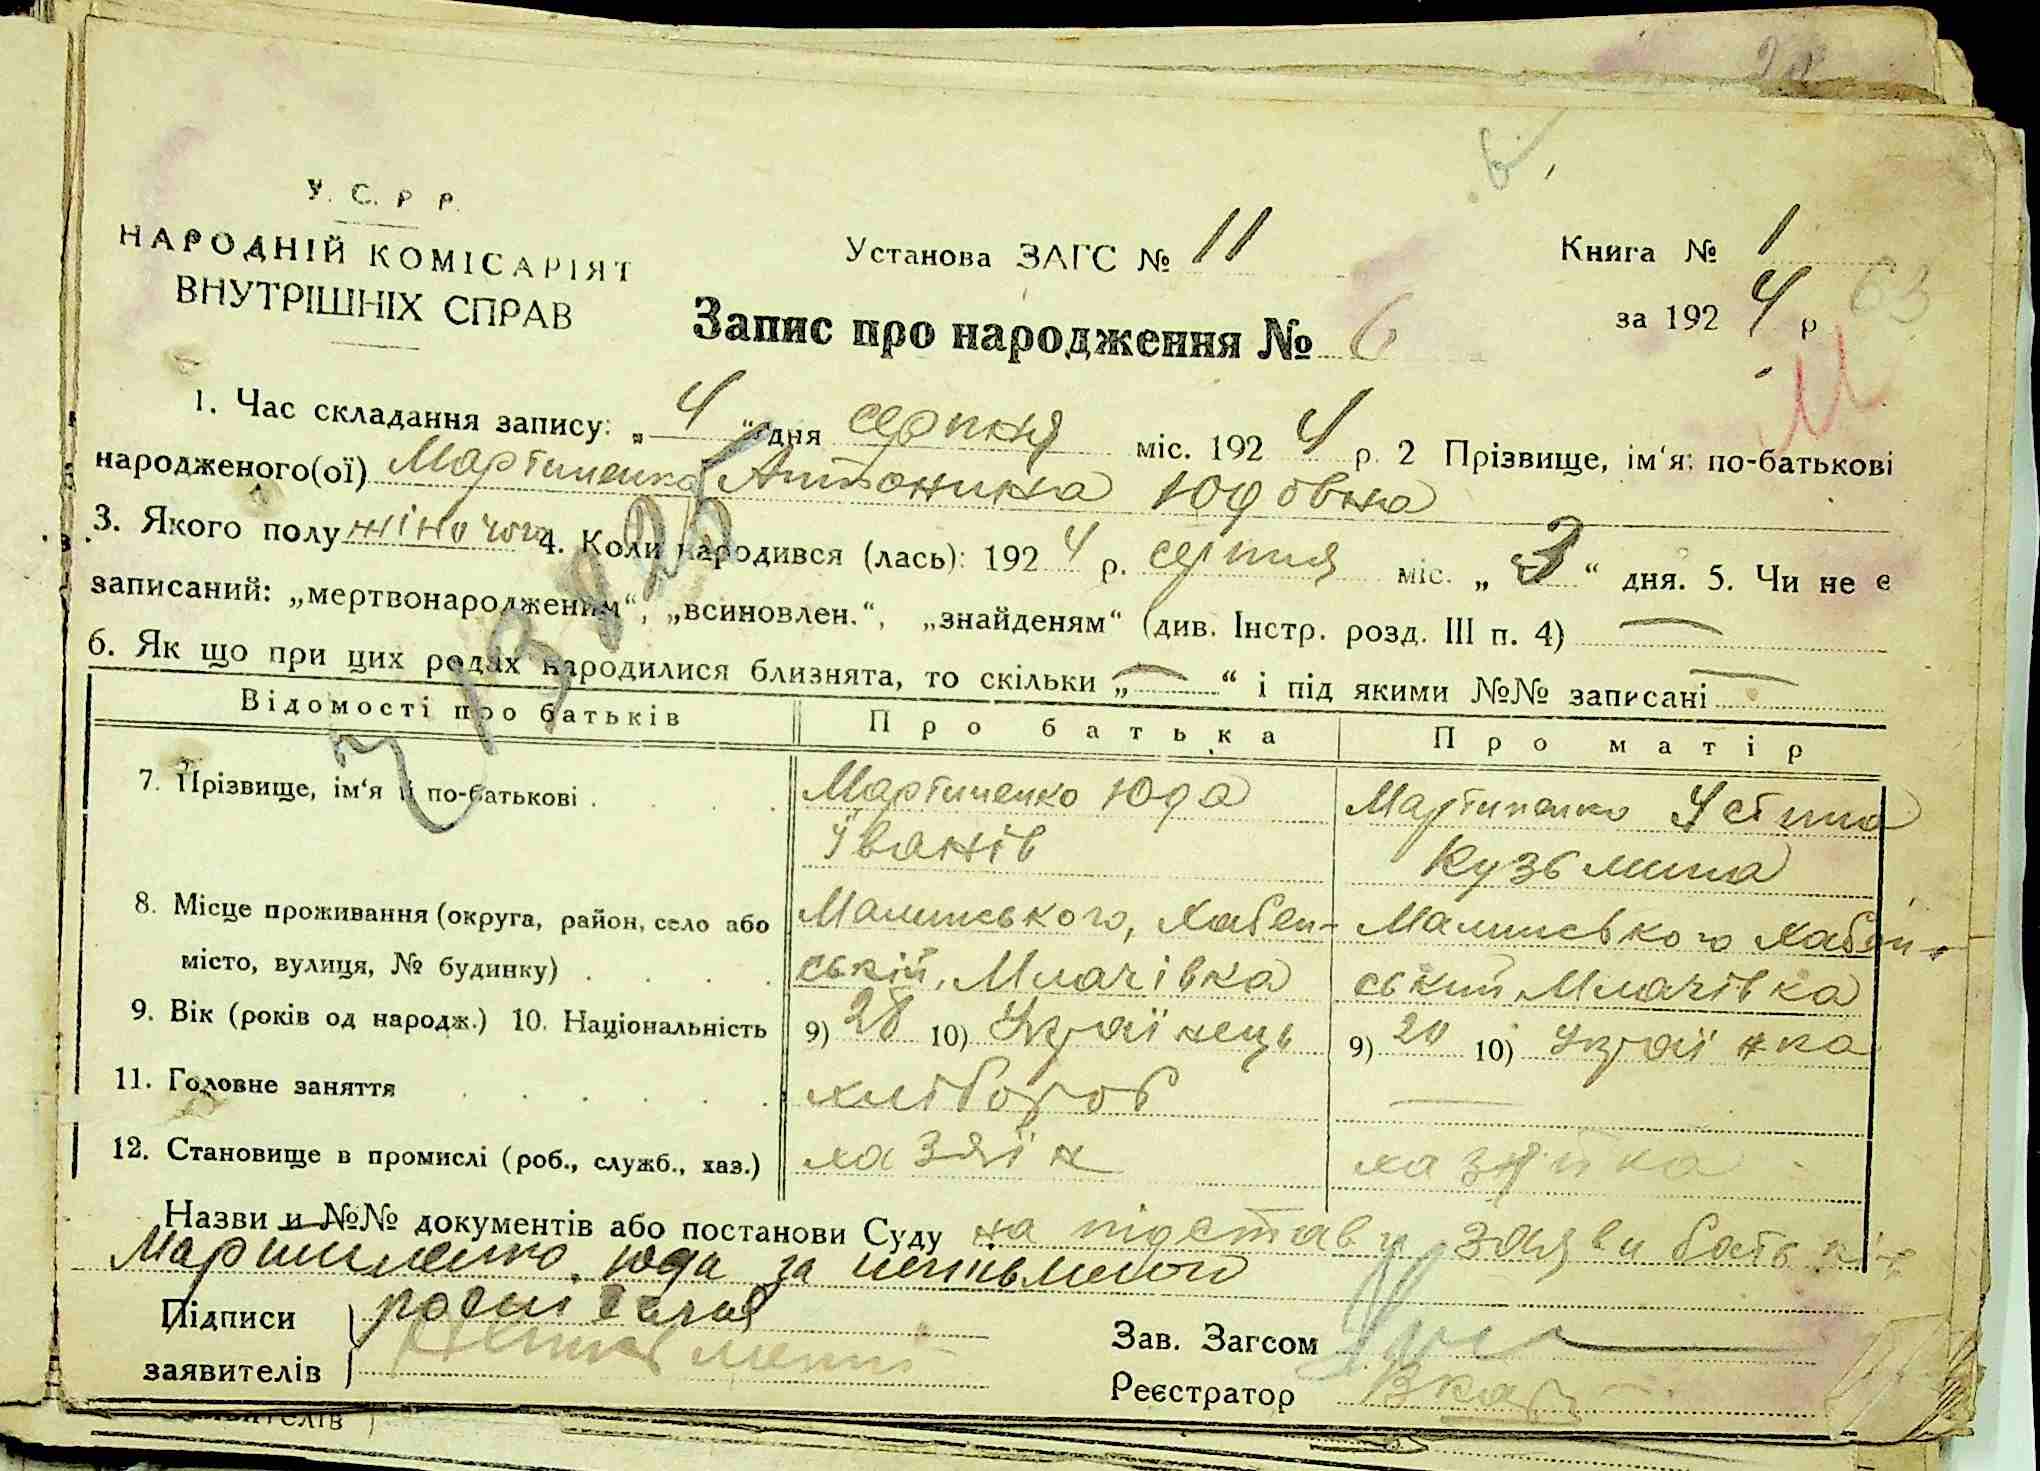 У. С. Р Р.
НАРОДНІЙ КОМІСАРІЯТ
ВНУТРІШНІХ СПРАВ
Установа ЗАГС № 11
Книга № 1
за 192 4 р
63
Запис про народження № 6
1. Час складання запису: „ 4 " дня серпня міс. 192 4 р. 2 Прізвище, ім'я; по-батькові
народженого(ої) Мартиненко Антонина Юдовна
3. Якого полу жіночого 4. Коли народився (лась): 192 4 р. серпня міс. „ 3 " дня. 5. Чи не є
записаний: „мертвонародженим", „всиновлен.", „знайденям" (див. Інстр. розд. III п. 4)
6. Як що при цих родах народилися близнята, то скільки „ — " і під якими №№ записані —
Відомості про батьків Про батька Про матір
7. Прізвище, ім'я й по-батькові . Мартиненко Юда Мартиненко Устина
Іванів Кузьмина
8. Місце проживання (округа, район, село або Малинського, Хабен- Малинського Хабен-
місто, вулиця, № будинку) ський, Млачівка ський Млачівка
9. Вік (років од народж.) 10. Національність 9) 28 10) Українець 9) 20 10) Українка
11. Головне заняття хлібороб —
12. Становище в промислі (роб., служб., хаз.) хазяїн хазяйка
Назви и №№ документів або постанови Суду на підставу заяви батьків
Мартиненко Юда за
Підписи
заявителів
Зав. Загсом
Реєстратор